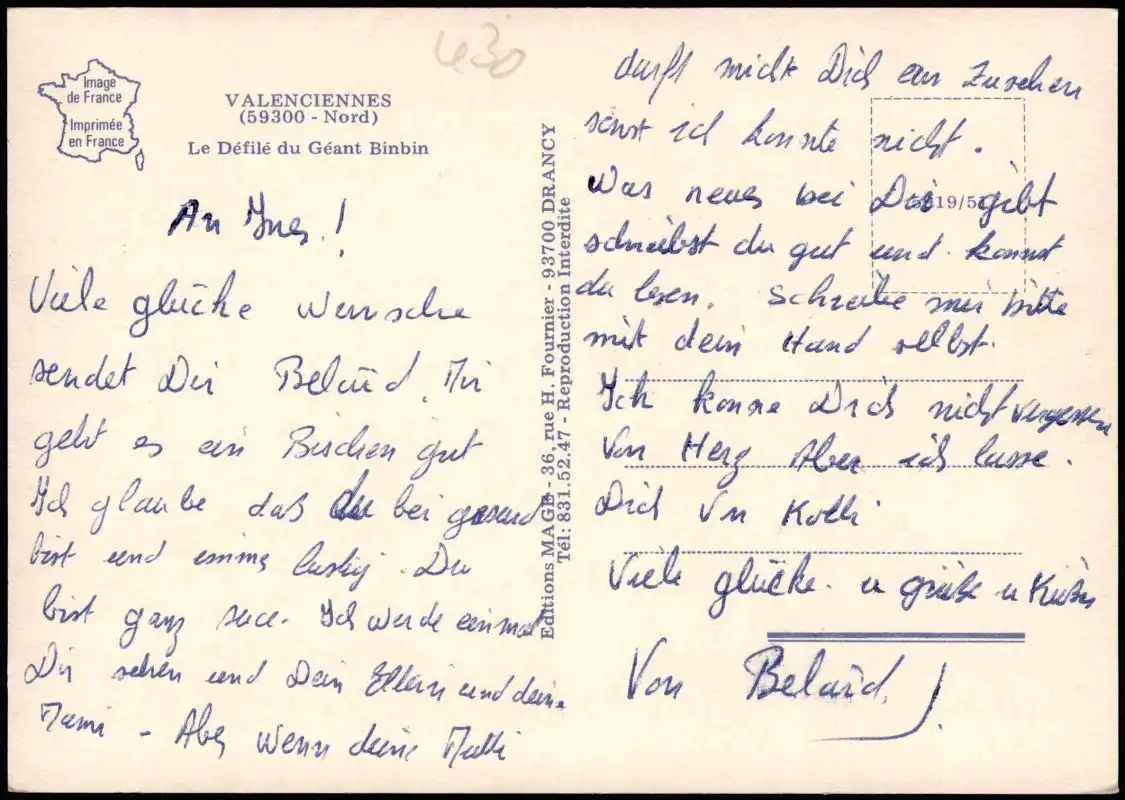 430
Image
de France
Imprimée
en France
VALENCIENNES
(59300 - Nord)
Le Défilé du Géant Binbin
Editions MAGE - 36, rue H. Fournier - 93700 DRANCY
Tél: 831.52.47 - Reproduction Interdite
An Ines!
Viele glücke wunsche
sendet Dir Belaïd. Mir
geht es ein Bischen gut
Ich glaube daß du bei gesund
bist und imme lustig. Du
bist ganz Ich werde einmal
Dir sehen und Dein Eltern und deine
Mami - Aber wenn deine Mutti
darft nicht Dich an zusehen
sonst ich konnte nicht.
Was neues bei Dir gibt
schreibst du gut und konnst
du lesen. Schreibe mir bitte
mit dein Hand selbst.
Ich konne Dich nicht vergessen
Von Herz Aber ich lasse.
Dich von
Viele glücke. u grüße u Küße
Von Belaïd.